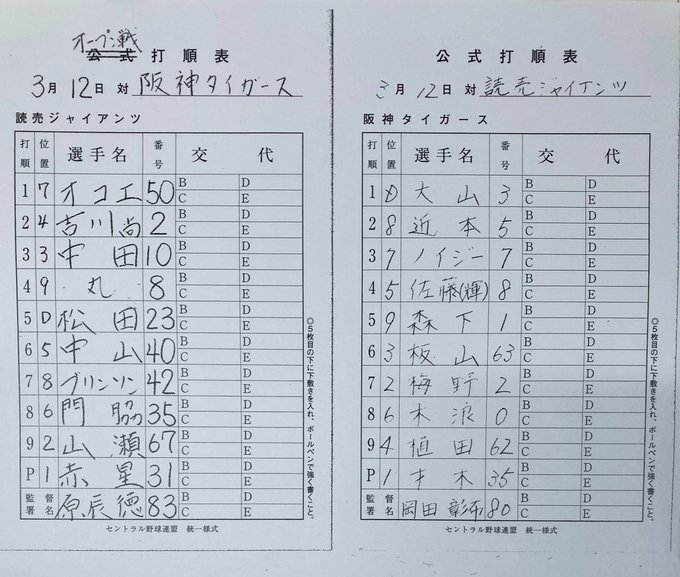 オープン戦
公式打順表
3月12日 対 阪神タイガース
読売ジャイアンツ
打順 位置 選手名 番号 交代
1 7 オコエ 50 B D C E
2 4 吉川尚 2 B D C E
3 3 中田 10 B D C E
4 9 丸 8 B D C E
5 D 松田 23 B D C E
6 5 中山 40 B D C E
7 8 ブリンソン 42 B D C E
8 6 門脇 35 B D C E
9 2 山瀬 67 B D C E
P 1 赤星 31 B D C E
監督署名 原辰徳 83 B D C E
セントラル野球連盟 統一様式
◎5枚目の下に下敷きを入れ、ボールペンで強く書くこと。
公式打順表
3月12日 対 読売ジャイアンツ
阪神タイガース
打順 位置 選手名 番号 交代
1 D 大山 3 B D C E
2 8 近本 5 B D C E
3 7 ノイジー 7 B D C E
4 5 佐藤(輝) 8 B D C E
5 9 森下 1 B D C E
6 3 板山 63 B D C E
7 2 梅野 2 B D C E
8 6 木浪 0 B D C E
9 4 植田 62 B D C E
P 1 才木 35 B D C E
監督署名 岡田彰布 80 B D C E
セントラル野球連盟 統一様式
◎5枚目の下に下敷きを入れ、ボールペンで強く書くこと。